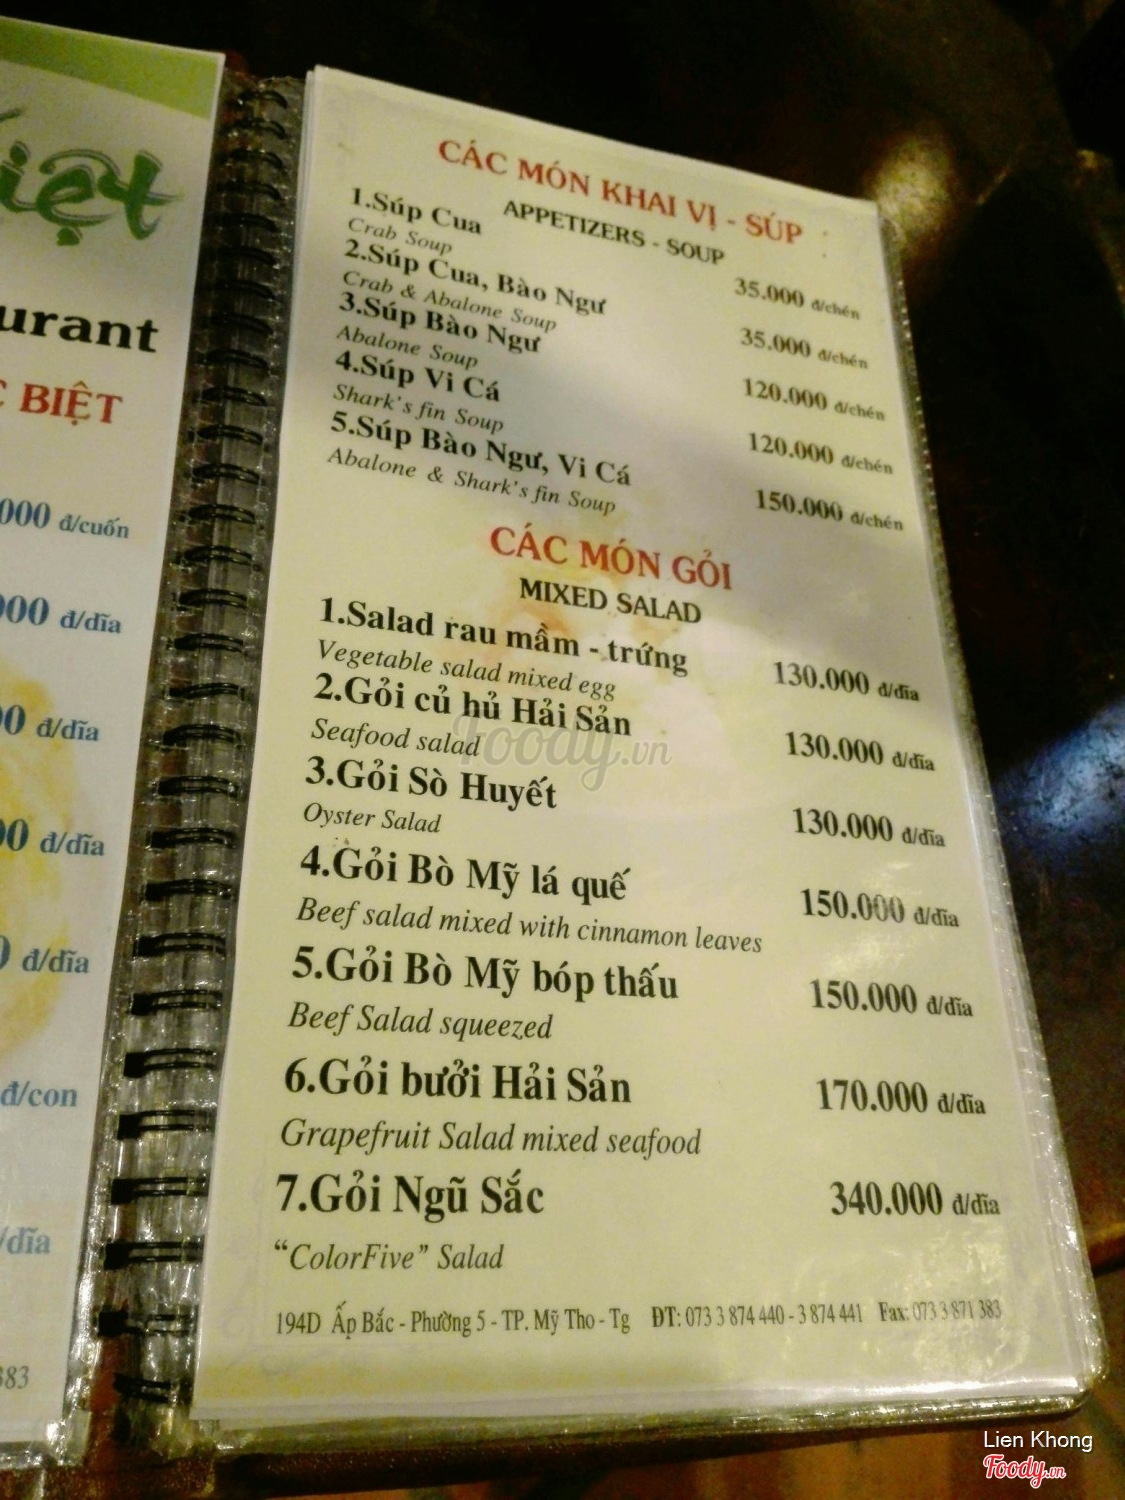 iệt
urant
BIỆT
000 đ/cuốn
000 đ/dĩa
00 đ/dĩa
00 đ/dĩa
0 đ/dĩa
đ/con
/dĩa
383
CÁC MÓN KHAI VỊ - SÚP
APPETIZERS - SOUP
1.Súp Cua 35.000 đ/chén
Crab Soup
2.Súp Cua, Bào Ngư 35.000 đ/chén
Crab & Abalone Soup
3.Súp Bào Ngư 120.000 đ/chén
Abalone Soup
4.Súp Vi Cá 120.000 đ/chén
Shark's fin Soup
5.Súp Bào Ngư, Vi Cá 150.000 đ/chén
Abalone & Shark's fin Soup
CÁC MÓN GỎI
MIXED SALAD
1.Salad rau mầm - trứng 130.000 đ/dĩa
Vegetable salad mixed egg
2.Gỏi củ hủ Hải Sản 130.000 đ/dĩa
Seafood salad
3.Gỏi Sò Huyết 130.000 đ/dĩa
Oyster Salad
4.Gỏi Bò Mỹ lá quế 150.000 đ/dĩa
Beef salad mixed with cinnamon leaves
5.Gỏi Bò Mỹ bóp thấu 150.000 đ/dĩa
Beef Salad squeezed
6.Gỏi bưởi Hải Sản 170.000 đ/dĩa
Grapefruit Salad mixed seafood
7.Gỏi Ngũ Sắc 340.000 đ/dĩa
"ColorFive" Salad
194D Ấp Bắc - Phường 5 - TP. Mỹ Tho - Tg ĐT: 073 3 874 440 - 3 874 441 Fax: 073 3 871 383
Foody.vn
Lien Khong
Foody.vn